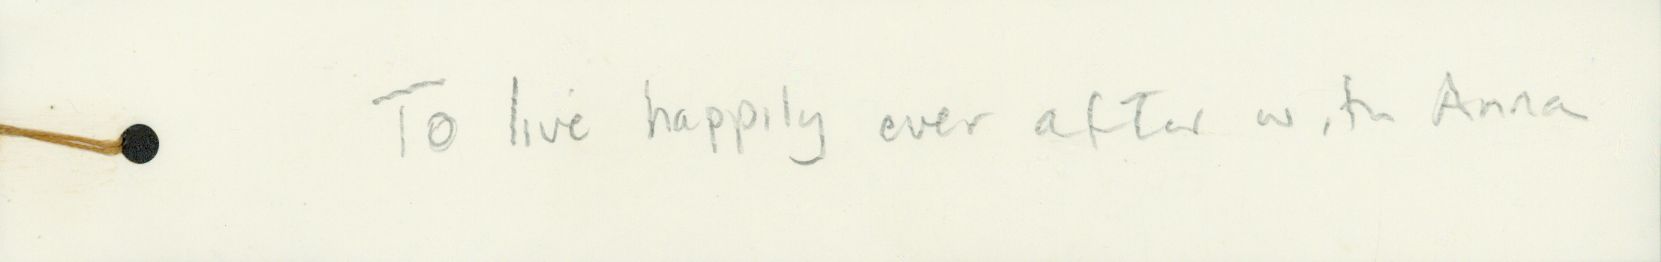 To live happily ever after with Anna